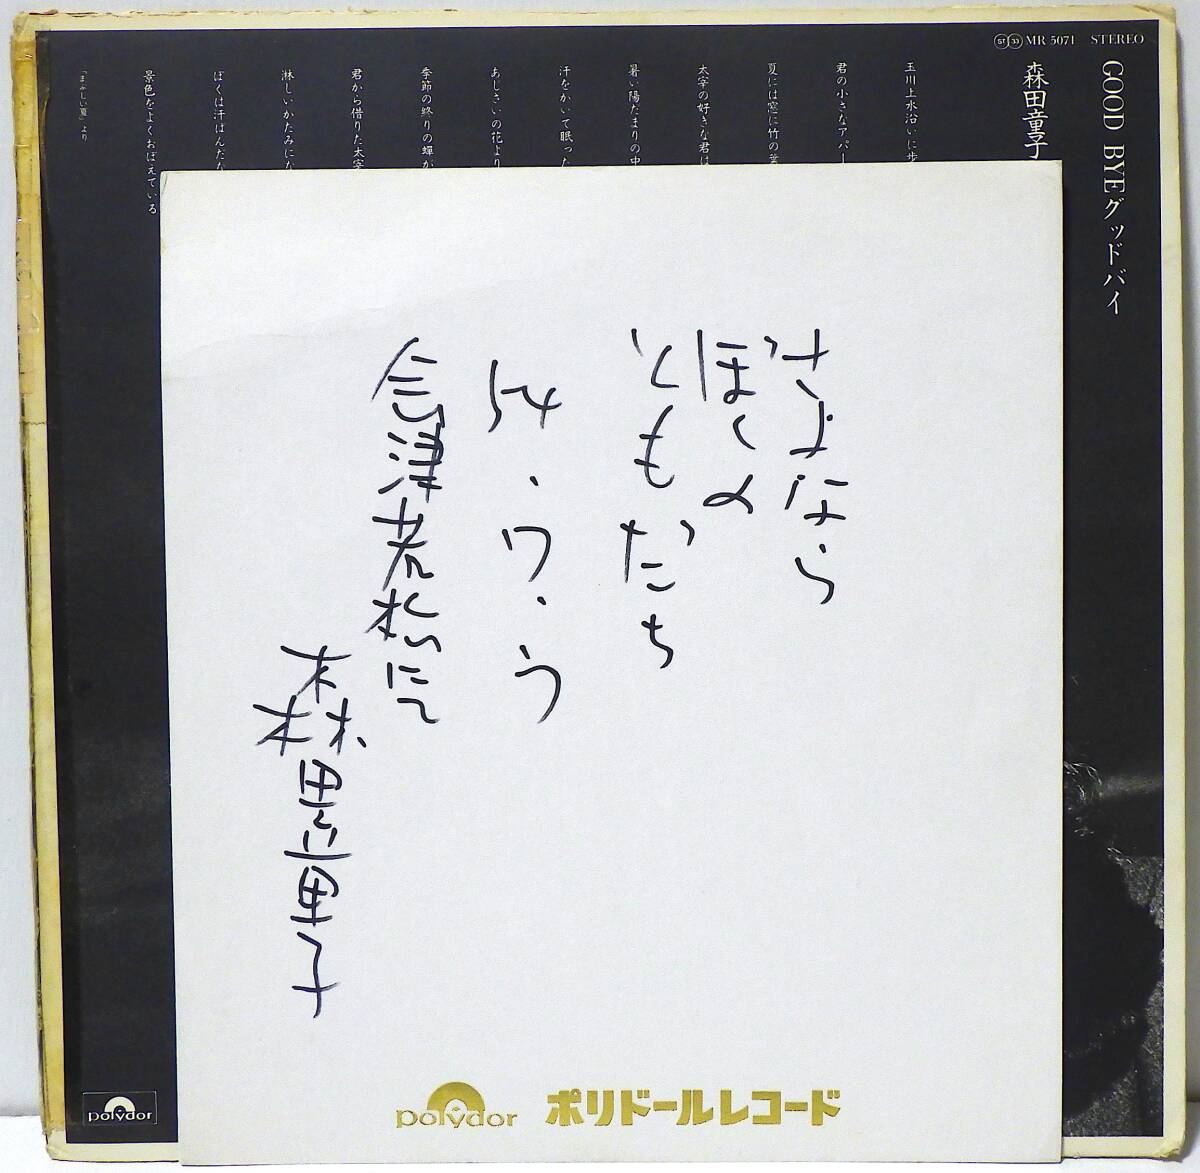 ST 33 MR 5071 STEREO
GOOD BYE グッドバイ
森田童子
玉川上水沿いに歩
君の小さなアパー
夏には窓に竹の葉
太宰の好きな君は
暑い陽だまりの中
汗をかいて眠った
あじさいの花より
季節の終りの蟬が
君から借りた太宰
淋しいかたみにな
ぼくは汗ばんだな
景色をよくおぼえている
「まぶしい夏」より
さよなら
ぼくの
ともだち
54.7.5
会津若松にて
森田童子
polydor ポリドールレコード
polydor